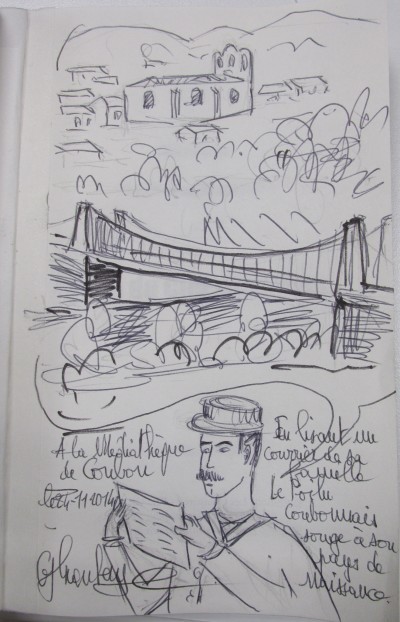 A la Médiathèque
de Coubon
le 24-11-2014
En lisant un
courrier de sa
famille
le Poilu
Coubonnais
songe a son
pays de
naissance.